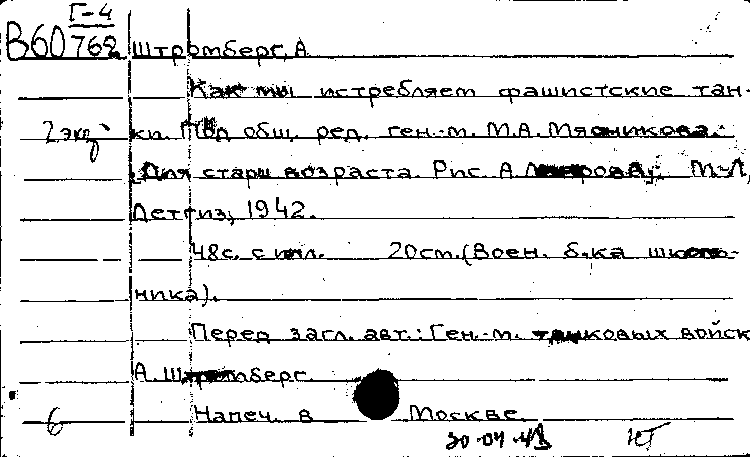 Г-4
В60 762 Штромберг, А
Как мы истребляем фашистские тан-
2 экз ки. Под общ. ред. ген.-м. М.А. Мясникова.
Для старш возраста. Рис. А. М-Л,
Детгиз, 1942.
48с. с илл. 20см. (Воен. б-ка школь-
ника).
Перед загл. авт.: Ген.-м. танковых войск
А. Штромберг.
6 Напеч. в Москве.
НТ